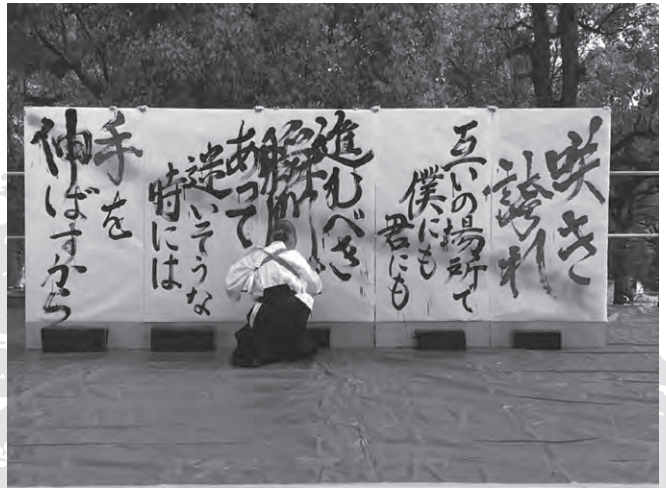 咲き
誇れ
互いの場所で
僕にも
君にも
進むべき
あって
迷いそうな
時には
手を
伸ばすから